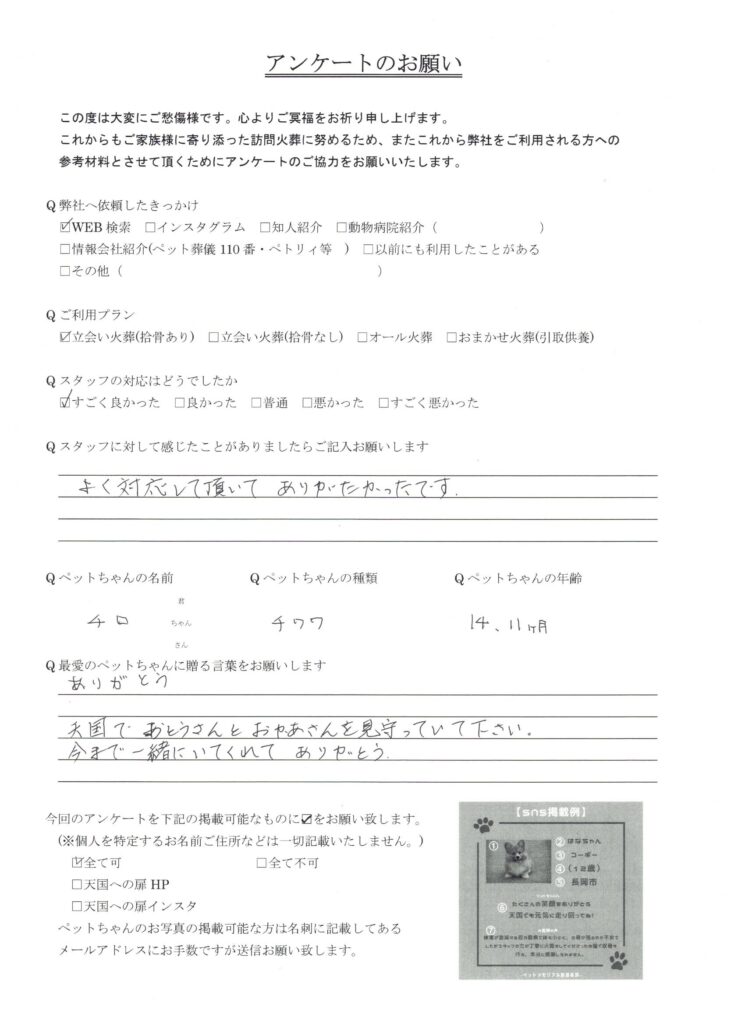 アンケートのお願い
この度は大変にご愁傷様です。心よりご冥福をお祈り申し上げます。
これからもご家族様に寄り添った訪問火葬に努めるため、またこれから弊社をご利用される方への
参考材料とさせて頂くためにアンケートのご協力をお願いいたします。
Q 弊社へ依頼したきっかけ
☑WEB 検索 □インスタグラム □知人紹介 □動物病院紹介（ ）
□情報会社紹介(ペット葬儀 110 番・ペトリィ等 ) □以前にも利用したことがある
□その他（ ）
Q ご利用プラン
☑立会い火葬(拾骨あり) □立会い火葬(拾骨なし) □オール火葬 □おまかせ火葬(引取供養)
Q スタッフの対応はどうでしたか
☑すごく良かった □良かった □普通 □悪かった □すごく悪かった
Q スタッフに対して感じたことがありましたらご記入お願いします
よく対応して頂いて ありがたかったです.
Q ペットちゃんの名前 Q ペットちゃんの種類 Q ペットちゃんの年齢
君
チロ ちゃん チワワ 14、11ヶ月
さん
Q 最愛のペットちゃんに贈る言葉をお願いします
ありがとう
天国で おとうさんと おかあさんを見守っていて下さい。
今まで一緒にいてくれて ありがとう.
今回のアンケートを下記の掲載可能なものに☑をお願い致します。
(※個人を特定するお名前ご住所などは一切記載いたしません。)
☑全て可 □全て不可
□天国への扉 HP
□天国への扉インスタ
ペットちゃんのお写真の掲載可能な方は名刺に記載してある
メールアドレスにお手数ですが送信お願い致します。
【sns掲載例】
① ② はなちゃん
③ コーギー
④ (12歳)
⑤ 長岡市
⑥ たくさんの笑顔をありがとう
天国でも元気に走り回ってね!
⑦